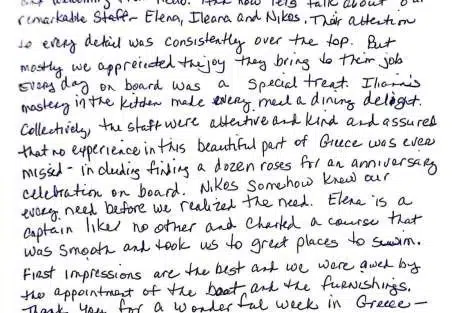 talk about our
remarkable staff - Elena, Ileana and Nikos. Their attention
to every detail was consistently over the top. But
mostly we appreciated the joy they bring to their job
every day on board was a special treat. Iliana's
mastery in the kitchen made every meal a dining delight.
Collectively, the staff were attentive and kind and assured
that no experience in this beautiful part of Greece was ever
missed - including finding a dozen roses for an anniversary
celebration on board. Nikos somehow knew our
every need before we realized the need. Elena is a
captain like no other and charted a course that
was smooth and took us to great places to swim.
First impressions are the best and we were awed by
the appointment of the boat and the furnishings.
Thank you for a wonderful week in Greece -